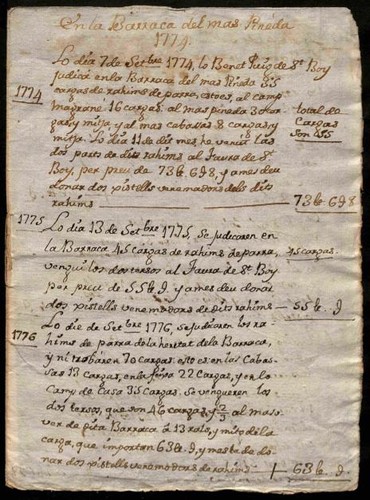 En la Barraca del mas Pineda
1774.
Lo dia 7 de Setbre 1774, lo Benet Puig de St. Boy
judicá en la Barraca del mas Pineda 55
1774
cargas de rahims de parra, estoes, al camp
magrané 16 cargas: al mas pineda 3
gas, y mitja, y al mas 8 cargas, y
mitja. Lo dia 11 de dit mes, he venut las
total de
Cargas
son
dos parts de dits rahims al Faura de St.
Boy, per preu de 73 ℔. 6 s 8, y ames deu
donar dos pistells venemadors dels dits
rahims 73 ℔. 6 s 8
1775
Lo dia 13 de Setbre 1775, se judicaren en
la Barraca 45 cargas de rahims de parra,
45 cargas.
venguí los dos tersos al Faura de St. Boy
per preu de 55 ℔. 9. y ames deu donar
dos pistells venemadors de dits rahims 55 ℔. 9
Lo die de Setbre 1776, se judicaren los ra-
1776
hims de parra de la heretat de la Barraca,
y ni trobaren 70 cargas, esto es en las Cabas-
sas 13 cargas, en la 22 cargas, y en lo
Camp de Casa 35 cargas. Se vengueren los
dos tersos, que son 46 cargas y 2/3 al mas-
ver de dita Barraca á 13 rals, y mitj de la
carga, que importan 63 ℔. 9, y mes ta de do-
nar dos pistells venemadors de rahims 63 ℔. 9